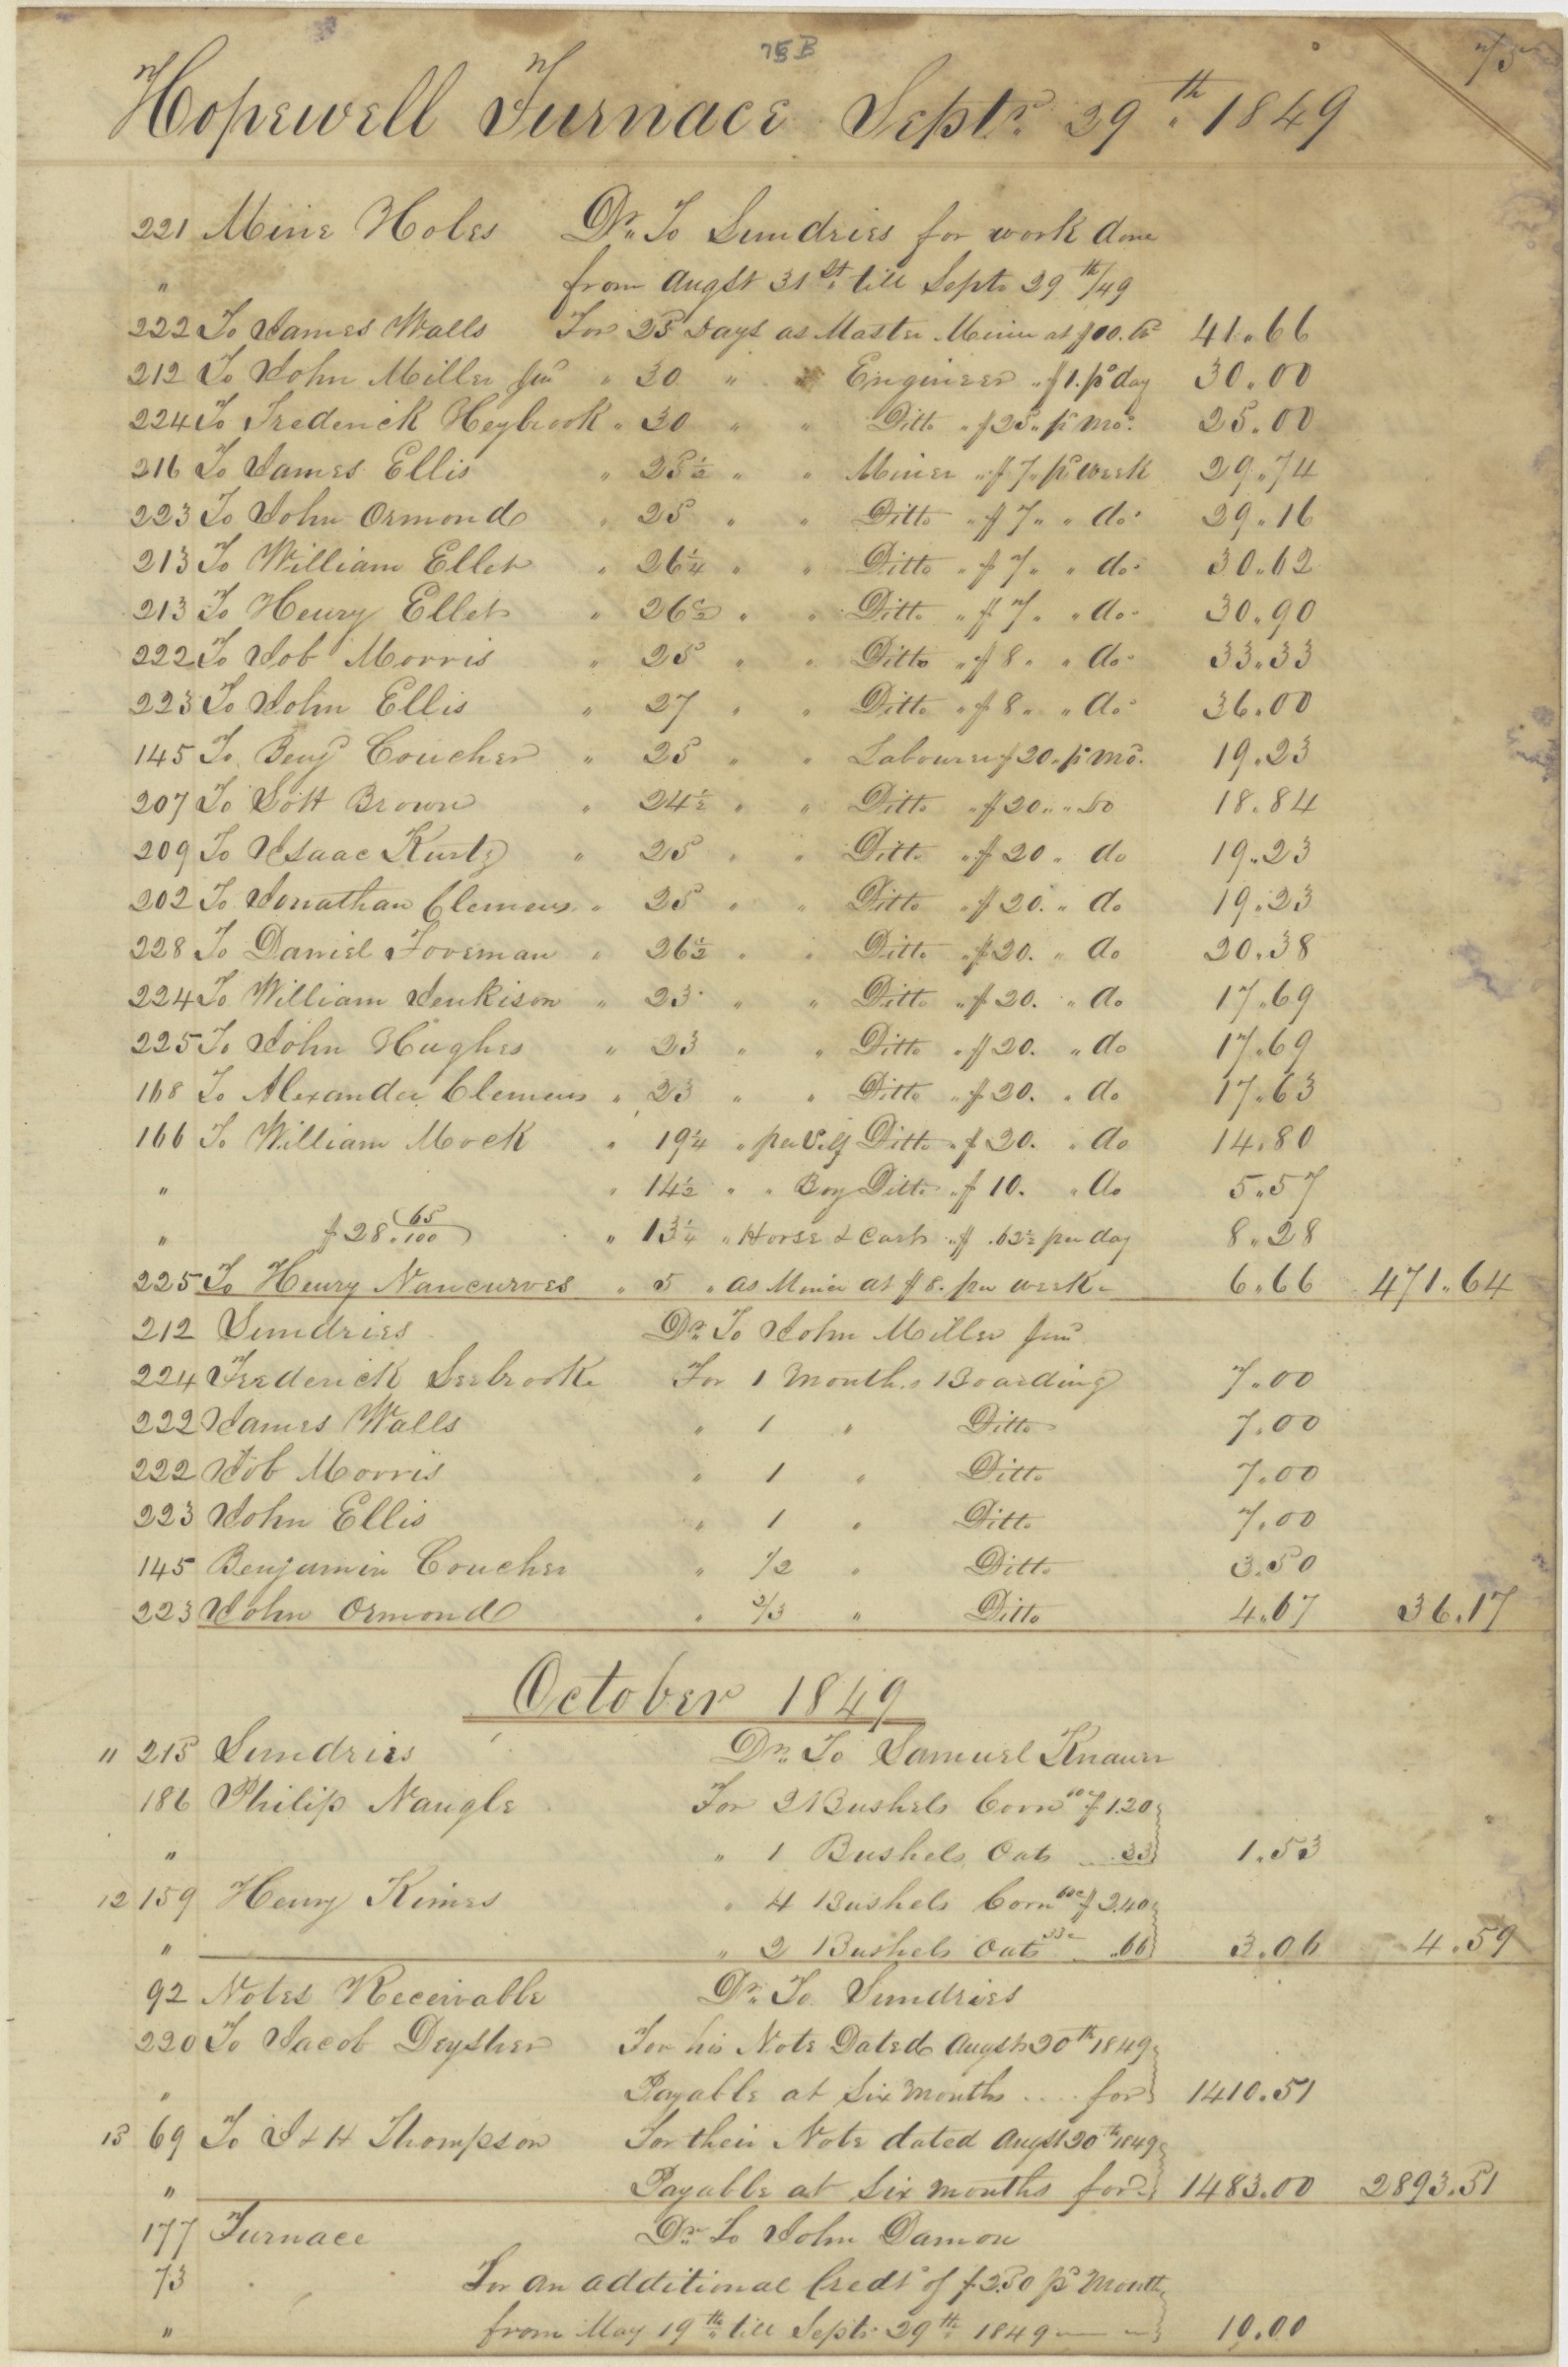 75B
75
Hopewell Furnace Septr. 29th. 1849
221 Mine Holes Dr. To Sundries for work done
" from Augst 31st. till Septr 29th/49
222 To James Walls For 25 Days as Master Miner at $ 41.66
212 To John Miller Junr " 30 " " Engineer " $1. pr day 30.00
224 To Frederick Heybrook " 30 " " Ditto " $25 " pr mo. 25.00
216 To James Ellis " 25½ " " Miner " $7. pr week 29.74
223 To John Ormond " 25 " " Ditto " $7 " " do. 29.16
213 To William Ellet " 26¼ " " Ditto " $7 " " do. 30.62
213 To Henry Ellet " 26½ " " Ditto " $7 " " do. 30.90
222 To Job Morris " 25 " " Ditto " $8 " " do. 33.33
223 To John Ellis " 27 " " Ditto " $8 " " do. 36.00
145 To Benj Coucher " 25 " " Labourer $20. pr mo. 19.23
207 To Scott Brown " 24½ " " Ditto " $20 " " Do 18.84
209 To Isaac Kurtz " 25 " " Ditto " $20 " do 19.23
202 To Jonathan Clemens " 25 " " Ditto " $20. " do 19.23
228 To Daniel Foreman " 26½ " " Ditto " $20. " do 20.38
224 To William Jenkison " 23 " " Ditto " $20. " do 17.69
225 To John Hughes " 23 " " Ditto " $20. " do 17.69
168 To Alexander Clemens " 23 " " Ditto " $20. " do 17.63
166 To William Mock " 19¼ " per Self Ditto " $20. " do 14.80
" " 14½ " " Boy Ditto " $10. " do 5.57
" $28.65/100 " 13¼ " Horse & Cart " $ .62½ per day 8.28
225 To Henry Nancurves " 5 " as Miner at $8. per week 6.66 471.64
212 Sundries Dr. To John Miller Junr
224 Frederick Seebrooke For 1 Months Boarding 7.00
222 James Walls " 1 " Ditto 7.00
222 Job Morris " 1 " Ditto 7.00
223 John Ellis " 1 " Ditto 7.00
145 Benjamin Coucher " 1/2 " Ditto 3.50
223 John Ormond " 2/3 " Ditto 4.67 36.17
October 1849
11 215 Sundries Dr. To Samuel Knauer
186 Philip Naugle For 2 Bushels Corn 60c $1.20
" " 1 Bushels Oats .33 1.53
12 159 Henry Kimes " 4 Bushels Corn 60c $2.40
" " 2 Bushels Oats 33c .66 3.06 4.59
92 Notes Receivable Dr. To Sundries
220 To Jacob Deysher For his Note Dated Augst 20th 1849
" Payable at Six Months .... for 1410.51
13 69 To J & H Thompson For their Note dated Augst 20th 1849
" Payable at Six months for 1483.00 2893.51
177 Furnace Dr. To John Damon
73 For an additional Credt of $2.50 pr Month
" from May 19th. till Septr 29th. 1849 10.00